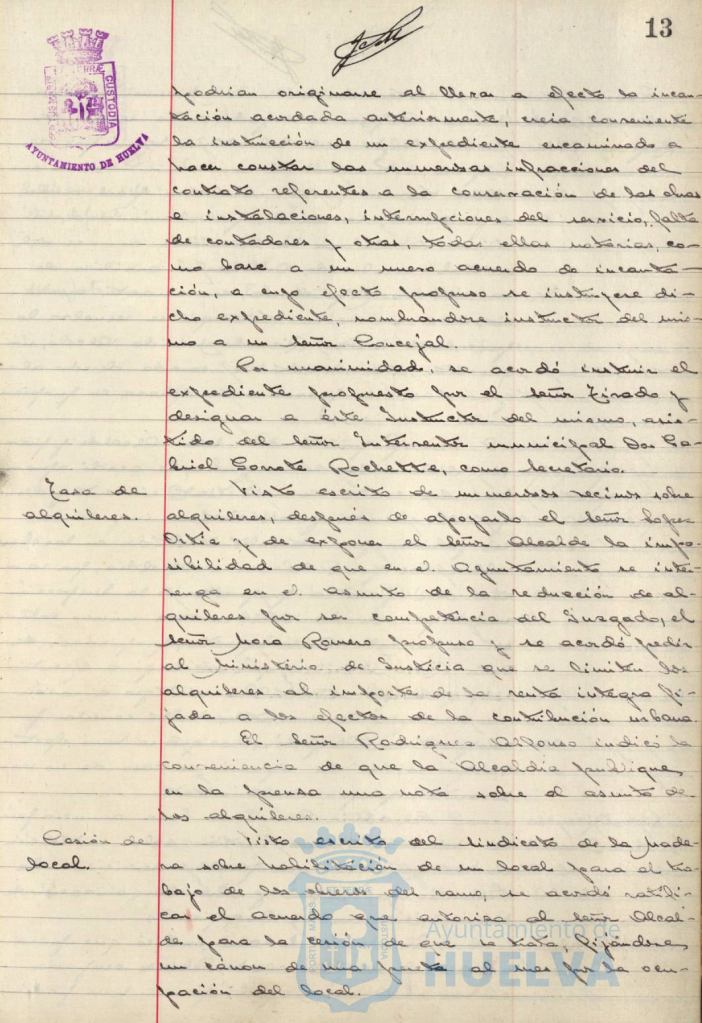 13
PORTUS MARIS ET TERRÆ CUSTODIA
AYUNTAMIENTO DE HUELVA
podrían originarse al llevar a efecto la incau-
tación acordada anteriormente, creía conveniente
la instrucción de un expediente encaminado a
hacer constar las numerosas infracciones del
contrato referentes a la conservación de las obras
e instalaciones, interrupciones del servicio, falta
de contadores y otras, todas ellas notorias, co-
mo base a un nuevo acuerdo de incauta-
ción, a cuyo efecto propuso se instruyese di-
cho expediente, nombrándose instructor del mis-
mo a un señor Concejal.
Por unanimidad, se acordó instruir el
expediente propuesto por el señor Tirado y
designar a éste Instructor del mismo, asis-
tido del señor Interventor municipal Don Ga-
briel Rochette, como Secretario.
Tasa de
alquileres.
Visto escrito de numerosos vecinos sobre
alquileres, después de apoyarlo el señor López
Ortiz y de exponer el señor Alcalde la impo-
sibilidad de que en el Ayuntamiento se inter-
venga en el asunto de la reducción de al-
quileres por ser competencia del Juzgado, el
señor Mora Romero propuso y se acordó pedir
al Ministerio de Justicia que se limiten los
alquileres al importe de la renta íntegra fi-
jada a los efectos de la contribución urbana.
El señor Rodríguez Alfonso indicó la
conveniencia de que la Alcaldía publique
en la prensa una nota sobre el asunto de
los alquileres.
Cesión de
local.
Visto escrito del Sindicato de la Made-
ra sobre habilitación de un local para el tra-
bajo de los obreros del ramo, se acordó ratifi-
car el acuerdo que autoriza al señor Alcal-
de para la cesión de que se trata, fijándose
un cánon de una peseta al mes por la ocu-
pación del local.
Ayuntamiento de
HUELVA